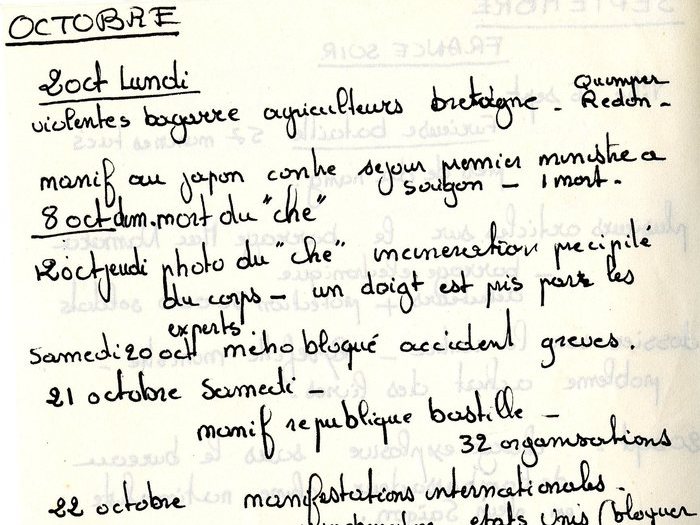 OCTOBRE
2oct Lundi
violentes bagarre agriculteurs bretagne - Quimper Redon -
manif au japon contre sejour premier ministre a
saigon - 1 mort.
8 oct dim. mort du "che"
12oct jeudi photo du "che" incineration precipité
du corps - un doigt est pris par les
experts
Samedi 20 oct métro bloqué accident greves.
21 octobre Samedi -
manif republique bastille -
32 organisations
22 octobre manifestations internationales.
etats unis (bloquer